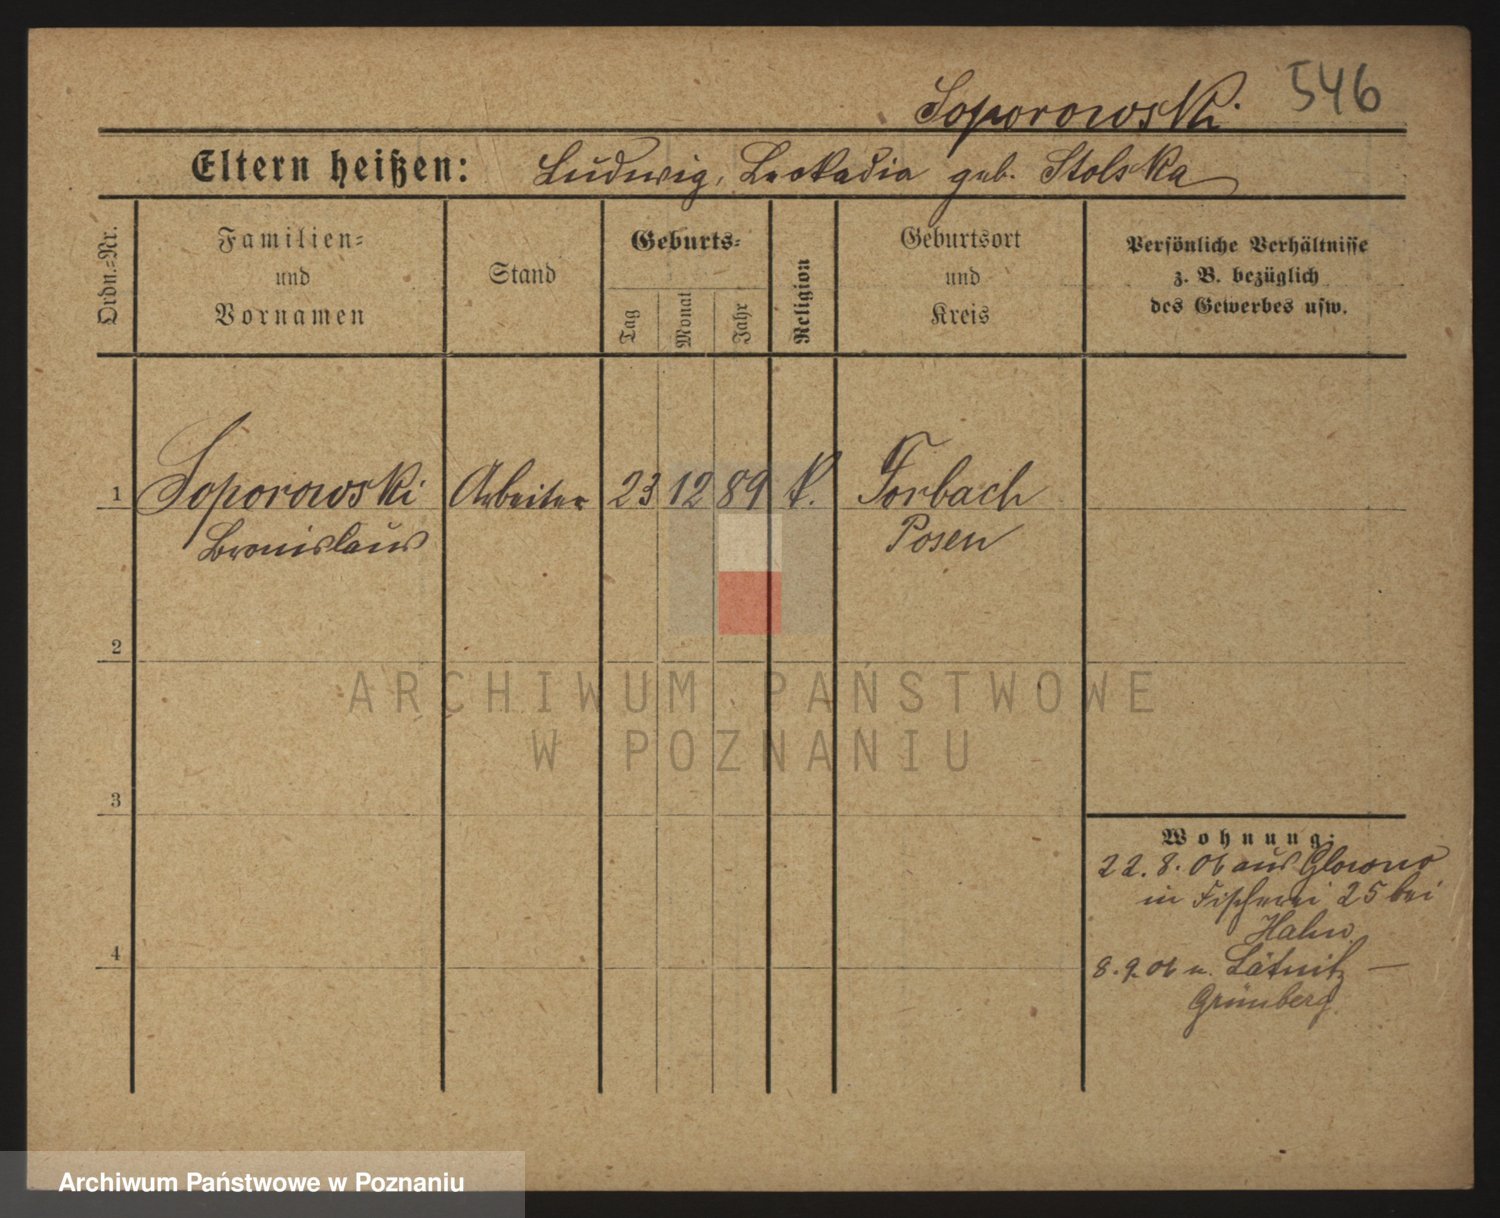 Soporowski 546
Eltern heißen: Ludwig, Leokadia geb. Stolska
Ordn.-Nr.
Familien-
und
Vornamen
Stand
Geburts-
Tag
Monat
Jahr
Religion
Geburtsort
und
Kreis
Persönliche Verhältnisse
z. B. bezüglich
des Gewerbes usw.
1 Soporowski Arbeiter 23 12 89 k. Forbach
Bronislaus Posen
2
ARCHIWUM PAŃSTWOWE
W POZNANIU
3
Wohnung:
22. 8. 06 aus Glowno
in Fischerei 25 bei
Hahn
4
8. 9. 06 n. Lätnitz —
Grünberg.
Archiwum Państwowe w Poznaniu